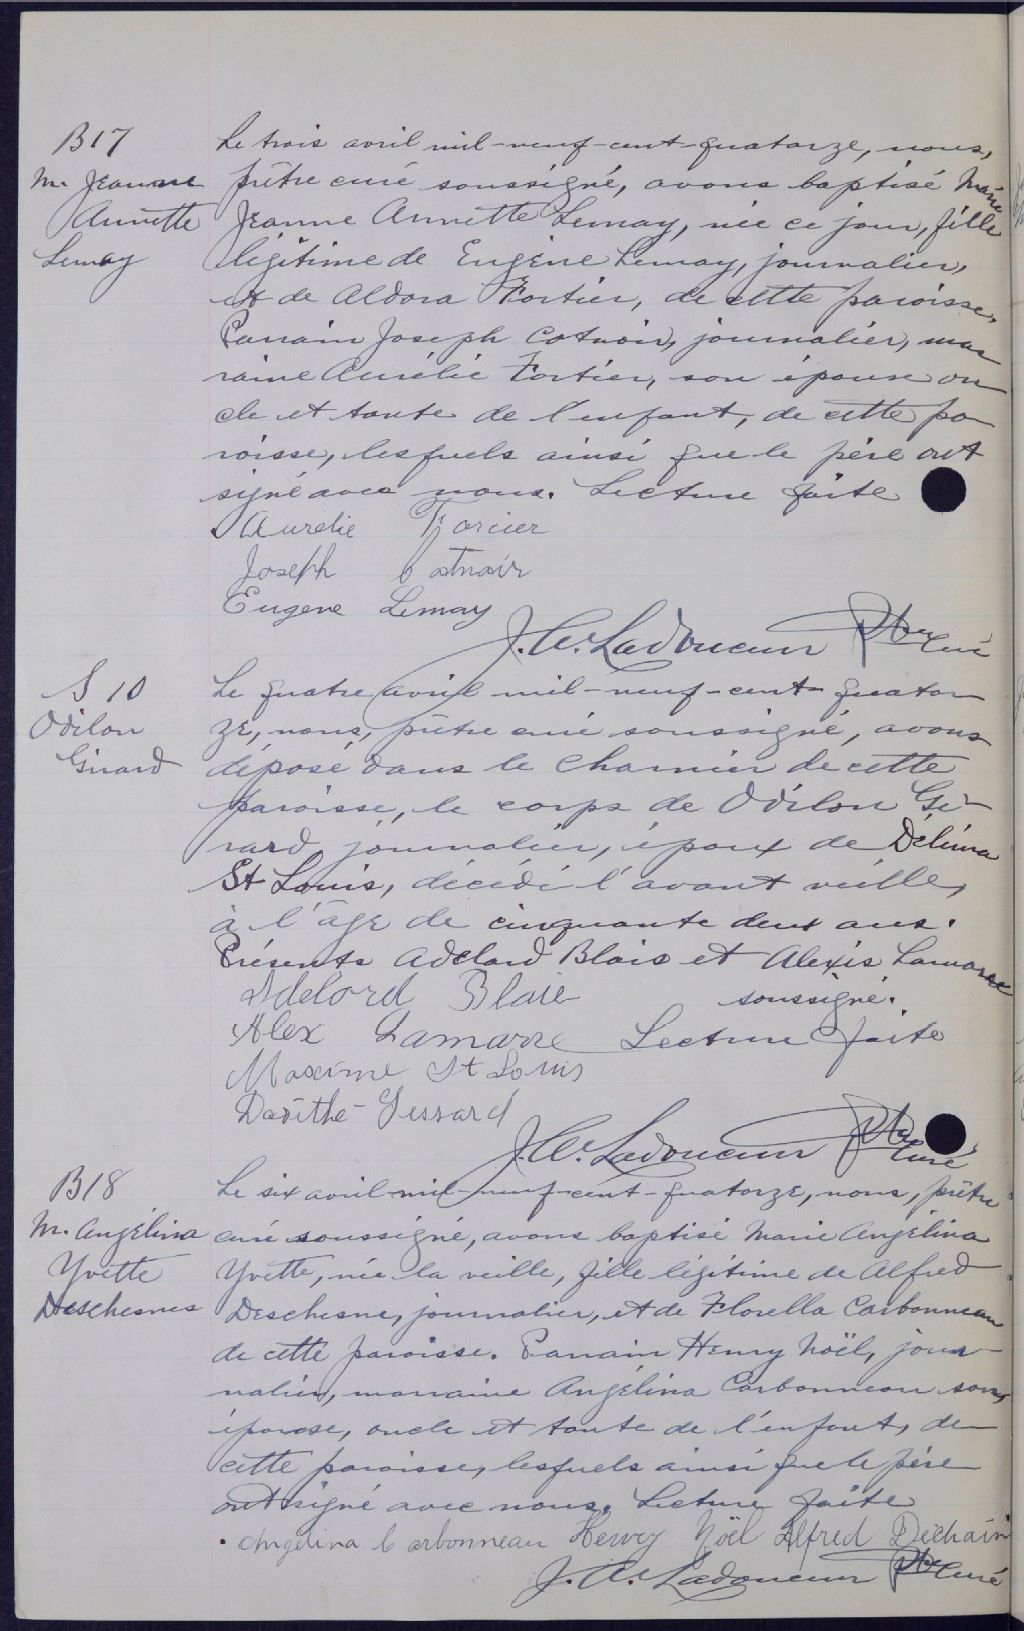 B17
M. Jeanne
Annette
Lemay
Le trois avril mil-neuf-cent-quatorze, nous,
prêtre curé soussigné, avons baptisé Marie
Jeanne Annette Lemay, née ce jour, fille
légitime de Eugène Lemay, journalier,
et de Aldora Fortier, de cette paroisse.
Parrain Joseph Cotnoir, journalier, mar
raine Aurélie Fortier, son épouse on
cle et tante de l'enfant, de cette pa
roisse, lesquels ainsi que le père ont
signé avec nous. Lecture faite
Aurelie Forcier
Joseph Cotnoir
Eugene Lemay
J. A. Ladouceur Ptre Curé
S 10
Odilon
Girard
Le quatre avril mil-neuf-cent-quator
ze, nous, prêtre curé soussigné, avons
déposé dans le charnier de cette
paroisse, le corps de Odilon Gi-
rard, journalier, époux de Délima
St Louis, décédé l'avant veille,
à l'âge de cinquante deux ans.
Présents Adelard Blais et Alexis Lamarre
soussigné.
Adelord Blais
Alex Lamarre Lecture faite
Maxime St Louis
J. A. Ladouceur Ptre Curé
B18
M. Angélina
Yvette
Deschesnes
Le six avril mil-neuf-cent-quatorze, nous, prêtre
curé soussigné, avons baptisé Marie Angélina
Yvette, née la veille, fille légitime de Alfred
Deschesne, journalier, et de Florella Carbonneau
de cette paroisse. Parrain Henry Noël, jour-
nalier, marraine Angélina Carbonneau son
épouse, oncle et tante de l'enfant, de
cette paroisse, lesquels ainsi que le père
ont signé avec nous. Lecture faite
Angelina Carbonneau Henry Noël Alfred Dechain
J. A. Ladouceur Ptre Curé